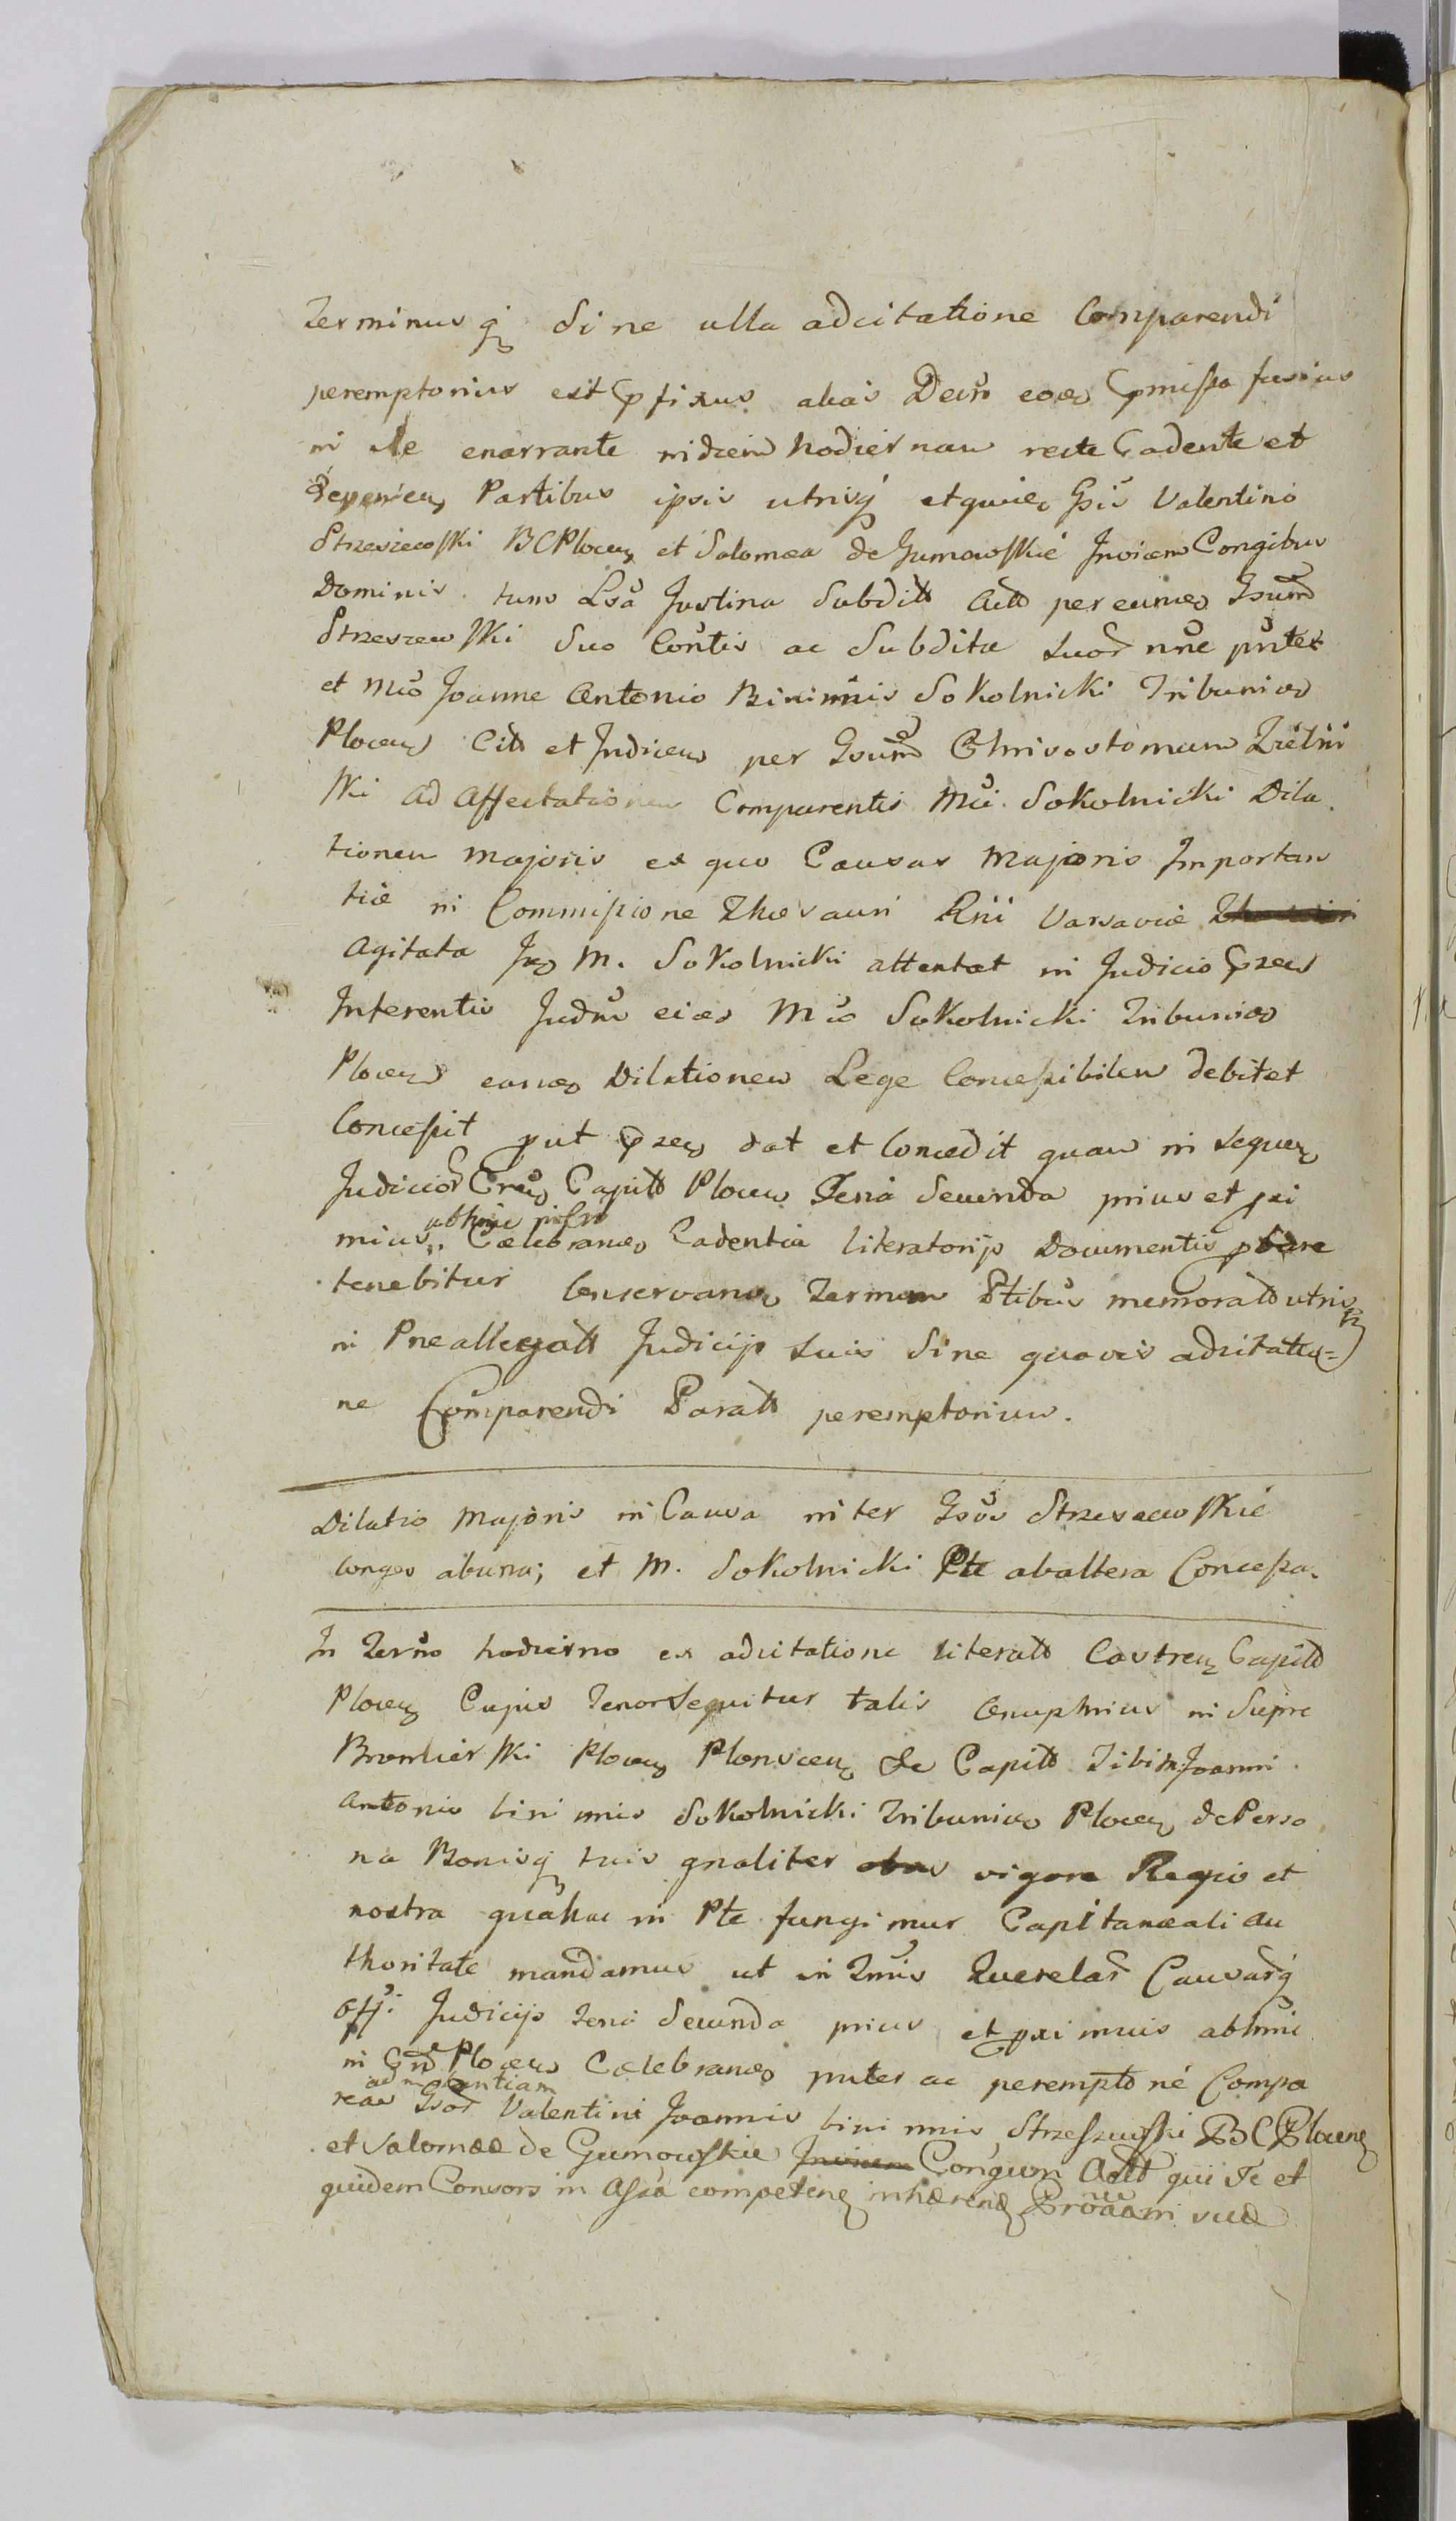 Terminusq sine ulla adcitatione Comparendi
peremptorius est pfixus alias Decro pmissa fusius
in se enarrante in diem hodiernam recte Cadente et
Partibus ipsis utrisq Gsis Valentino
Strzeszewski BC Plocen et Salomea de Gumowskie Invicem Congibus
Dominis tum Lsa Justina Subditt Actt per eundem Gsum
Strzeszewski suo Contis ac Subditæ suor nne pntes
et Mco Joanne Antonio Binimis Sokolnicki Tribunides
Plocen Citt et Judicem per Gsum Chrisostomum Zieliń
ski ad Affectationem Comparentis Mci Sokolnicki Dila
tionem majoris ex quo Causas Majoris Importan
tiæ in Commissione Thesauri Rni Varsaviæ
agitata M. Sokolnicki attentat in Judicio pzen
Interentis Judm Mco Sokolnicki Tribunides
Plocen Dilationem Lege Concessibilem debitet
Concessit put pzen dat et Concedit quam in sequen
Judicior Cren Capitt Plocen Feria Secunda prius et pxi
mius abhinc Cælebrandes Cadentia literatorijs Documentis pbare
tenebitur Conservando Termum Ptibus memoratt utrisq
in Preallegatt Judicijs suis Sine quavis adcitatio=
ne Comparendi Paratt peremptorium.
Dilatio Majoris in Causa inter Gsos Strzeszewskie
Conges abuna; et M. Sokolnicki Pte abaltera Concessa.
In Termo hodierno ex adcitatione literatt Castren Capitt
Plocen Cujus Tenor Sequitur talis Onuphrius in Supre
Bromierski Plocen Plonscen Se Capitt Tibi M. Joanni
Antonio bini mis Sokolnicki Tribunides Plocen de Perso
na Bonisq tuis gnaliter vigore Regia et
nostra quahac in Pte fungimur Capitaneali au
thoritate mandamus ut in Tmis Querelar Causarq
offi Judicijs Feria Secunda prius et pximius abhinc
in Grd Plocen Cælebrandes pnter ac perempttne Compa
reas ad instantiam Gsor Valentini Joannis bini mis Strzeszewski BC Plocen
et Salomeæ de Gumowskie Invicem Congum Actt qui Te et
quidem Consors in Assa competen inhæren Protoni suæ